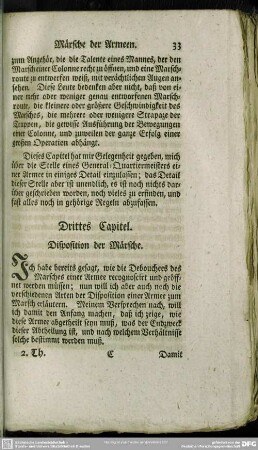 Märsche der Armeen. 33
zum Angehör, die die Talente eines Mannes, der den
Marsch einer Colonne recht zu öffnen, und eine Marsch-
route zu entwerfen weiß, mit verächtlichen Augen an-
sehen. Diese Leute bedenken aber nicht, daß von ei-
ner mehr oder weniger genau entworfenen Marsch-
route, die kleinere oder größere Geschwindigkeit des
Marsches, die mehrere oder wenigere Strapaze der
Truppen, die gewisse Ausführung der Bewegungen
einer Colonne, und zuweilen der ganze Erfolg einer
großen Operation abhängt.
Dieses Capitel hat mir Gelegenheit gegeben, mich
über die Stelle eines General-Quartiermeisters ei-
ner Armee in einiges Detail einzulassen; das Detail
dieser Stelle aber ist unendlich, es ist noch nichts dar-
über geschrieben worden, noch vieles zu erfinden, und
fast alles noch in gehörige Regeln abzufassen.
Drittes Capitel.
Disposition der Märsche.
Ich habe bereits gesagt, wie die Debouchees des
Marsches einer Armee recognoscirt und geöff-
net werden müssen; nun will ich aber auch noch die
verschiedenen Arten der Disposition einer Armee zum
Marsch erläutern. Meinem Versprechen nach, will
ich damit den Anfang machen, daß ich zeige, wie
diese Armee abgetheilt seyn muß, was der Endzweck
dieser Abtheilung ist, und nach welchem Verhältnisse
solche bestimmt werden muß.
2. Th. C Damit